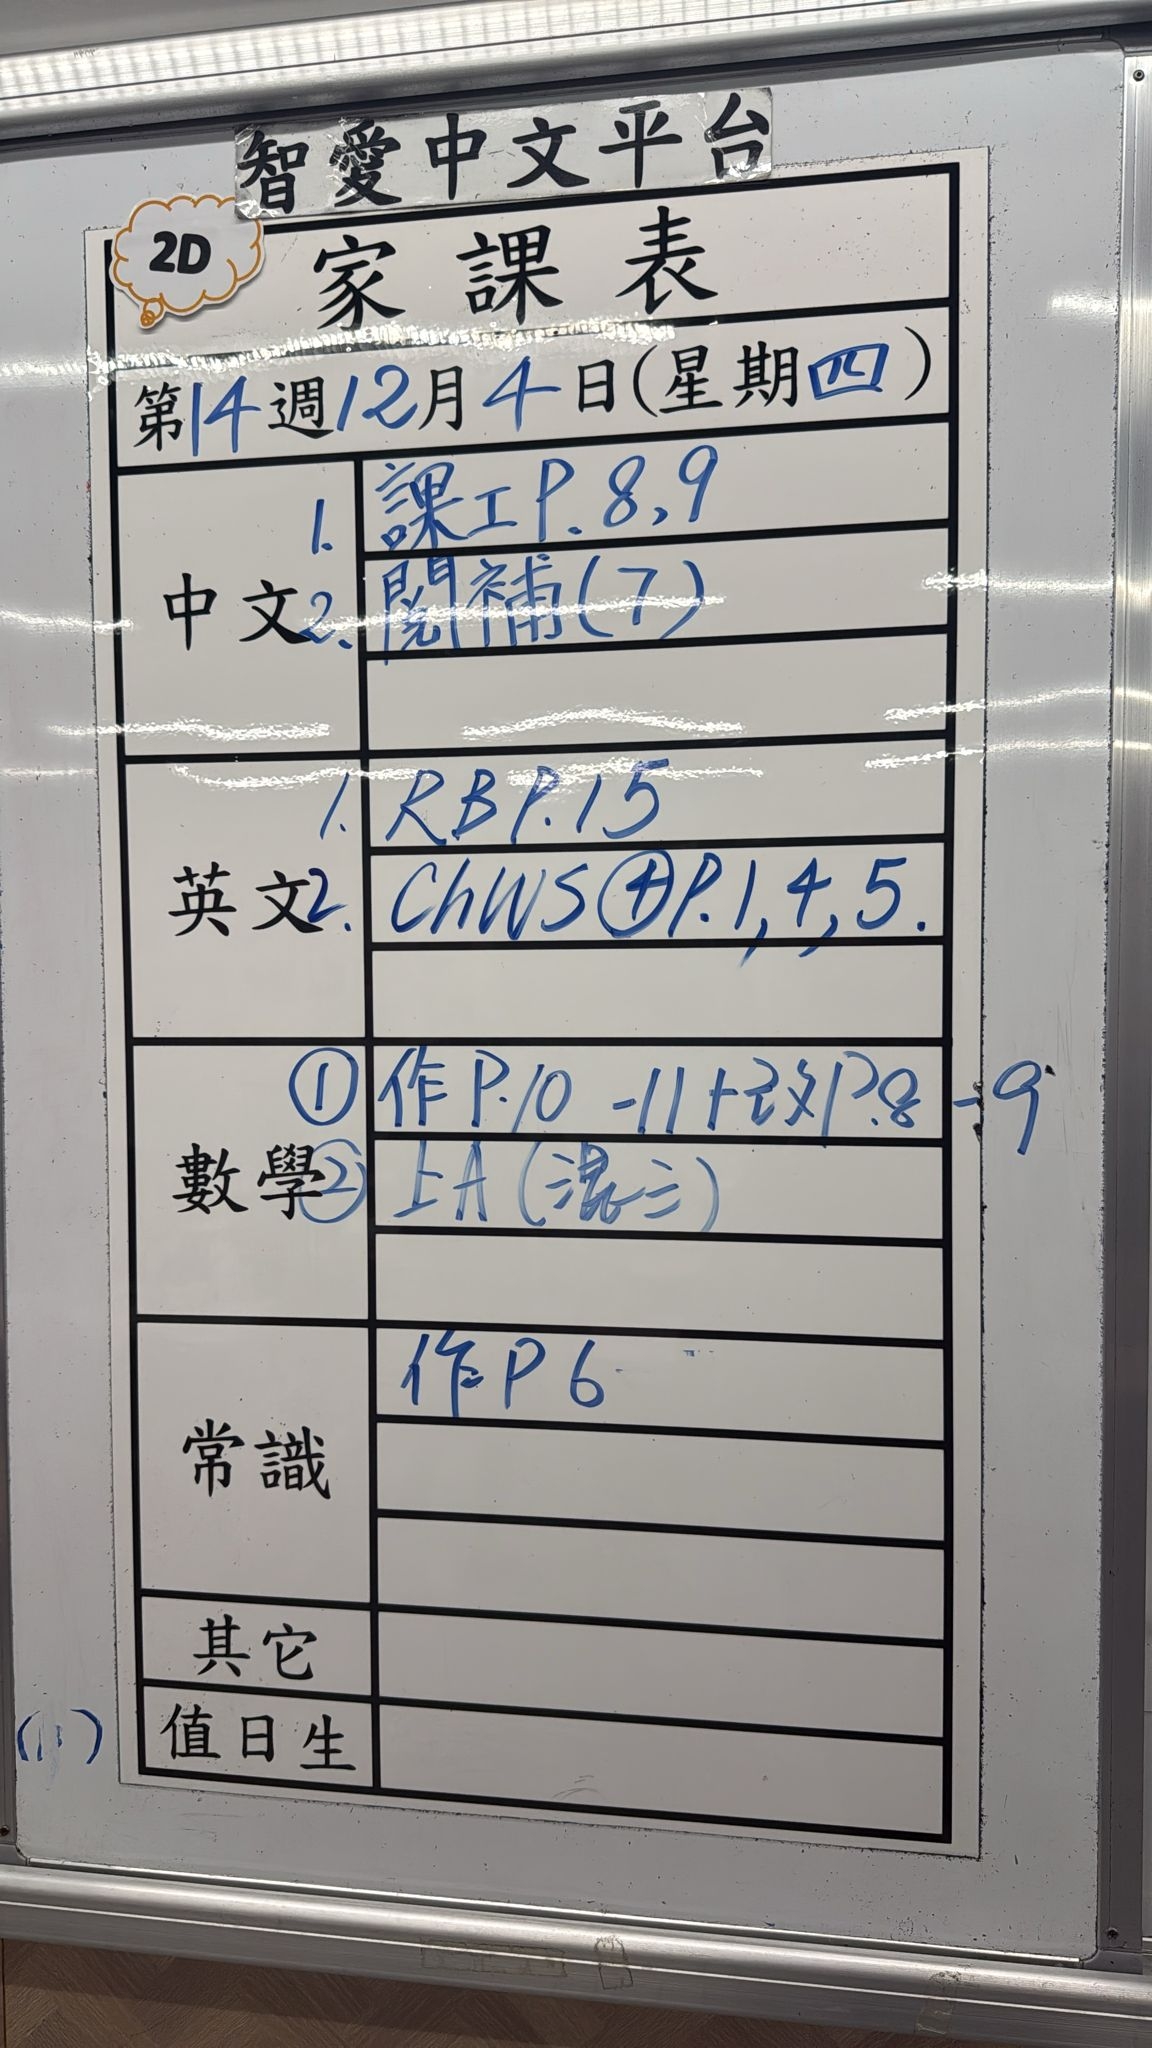 智愛中文平台
2D
家課表
第14週12月4日(星期四)
中文
1. 課工P.8,9
2. 閱補(7)
英文
1. RB P.15
2. ChWS④P.1,4,5.
數學
① 作P.10-11+改P.8-9
② 上A(混三)
常識
作P6
其它
值日生